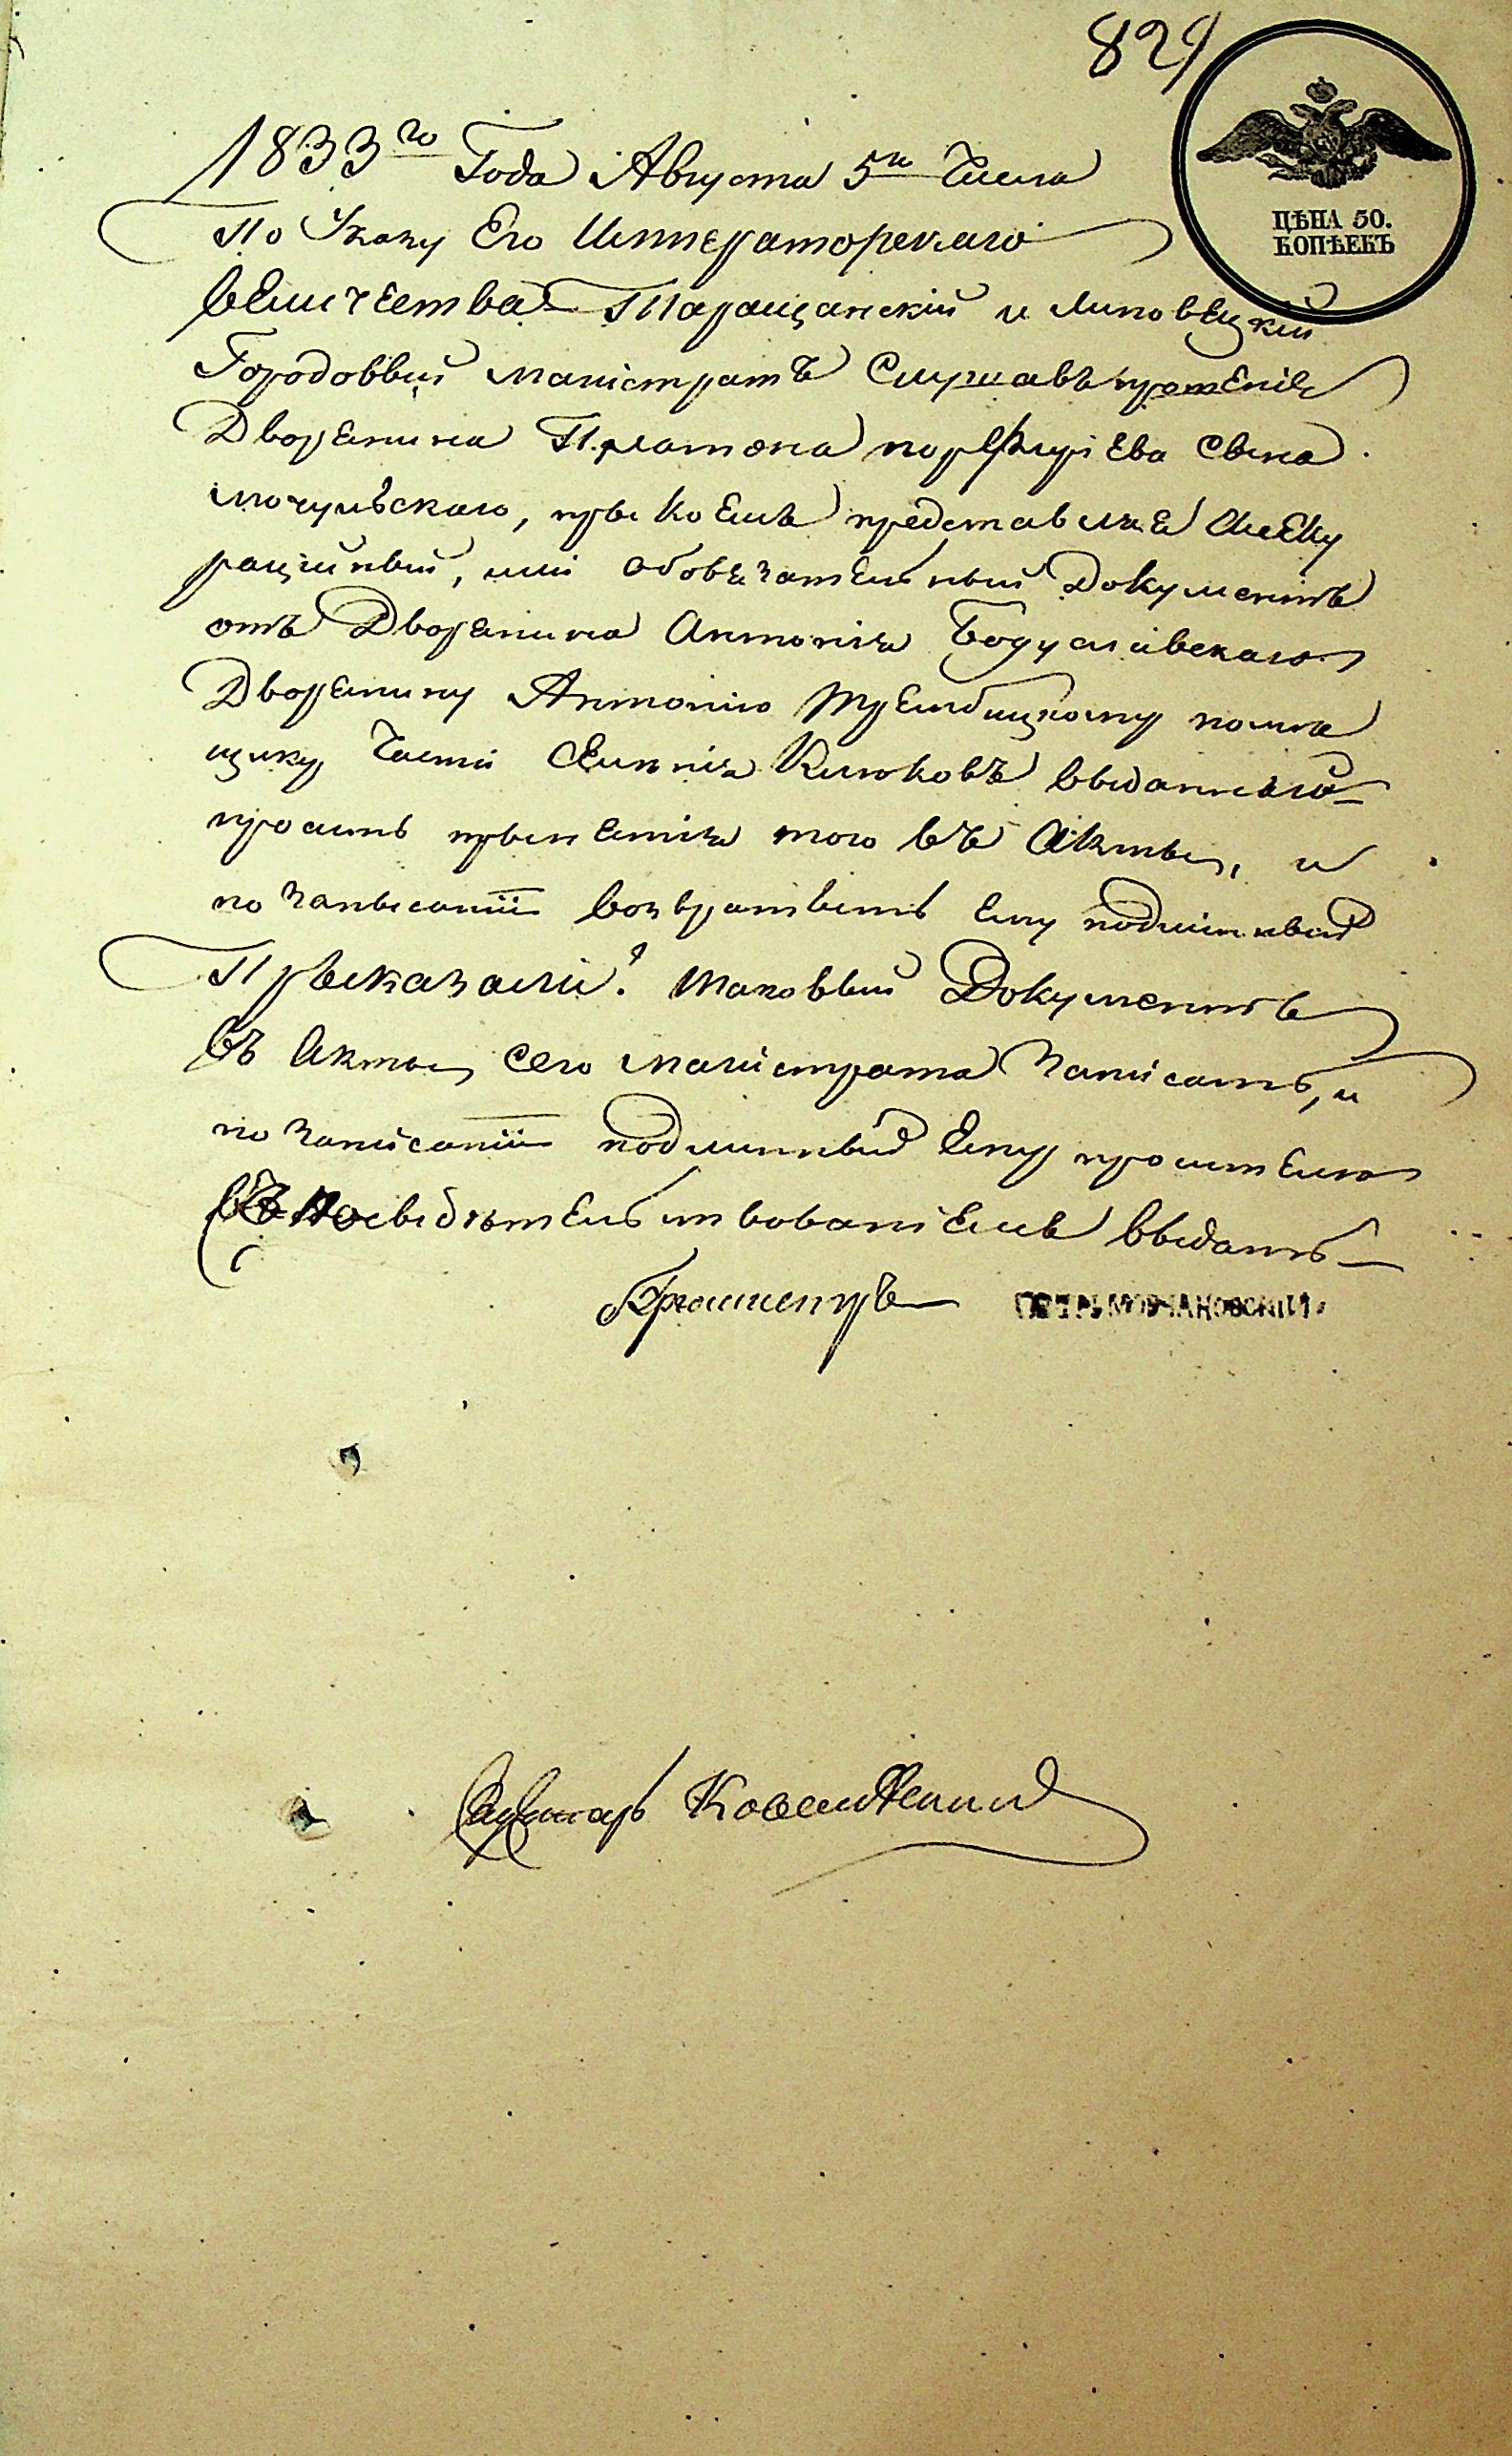 829
ЦѢНА 50.
КОПѢЕКЪ
1833го Года Августа 5го Числа
По Указу Его Императорскаго
величества Таращанский и Липовецкий
Городоввий магистратъ Слушавъ прошение
Дворенина Платона порфирiева сына
мочульскаго, при коемъ представляя Ассеку
рацийный, или обовязательный Документъ
отъ Дворенина Антонiя Богуславскаго
Дворенину Антонiю Трембицкому помѣ
щику Части Селенiя Клюковъ выданнаго
просить принятiя того въ Акты, и
по записанiи возвратить ему подлинный
Приказали: таковвий Документъ
въ Акты сего магистрата записать, и
по записанiи подлинный ему просителю
свидѣтельствованiемъ выдать
ПЕТРЪ МОВЧАНОВСКIЙ